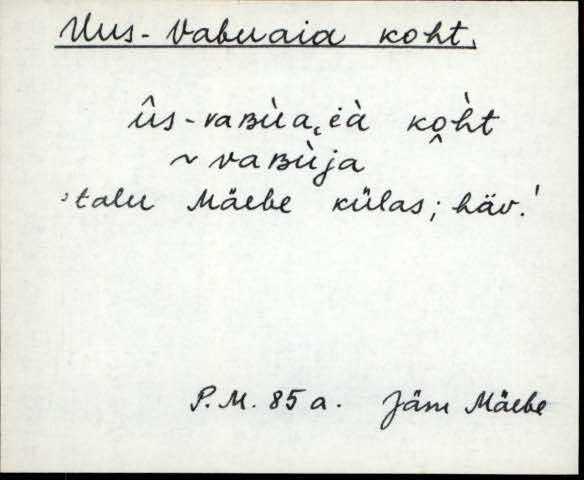 Uus-Vabuaia koht.
ûs-vaʙùa˛ià kò̭h̀t
~ vaʙùja
'talu Mäebe külas; häv.'
P.M. 85 a. Jäm Mäebe